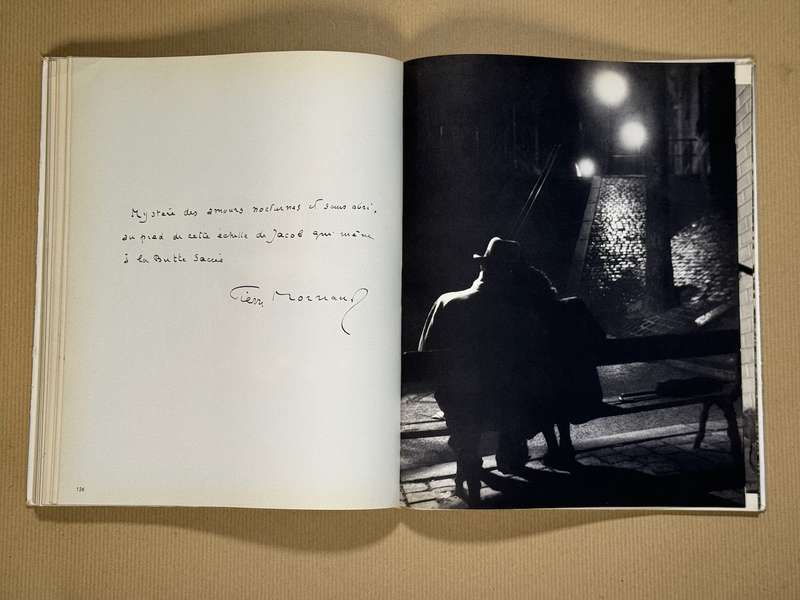 Mystère des amours nocturnes et sans abri,
au pied de cette échelle de Jacob qui mène
à la Butte Sacrée
Pierre Mornand
136